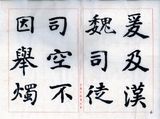 爰及漢
魏司徒
司空不
因舉燭